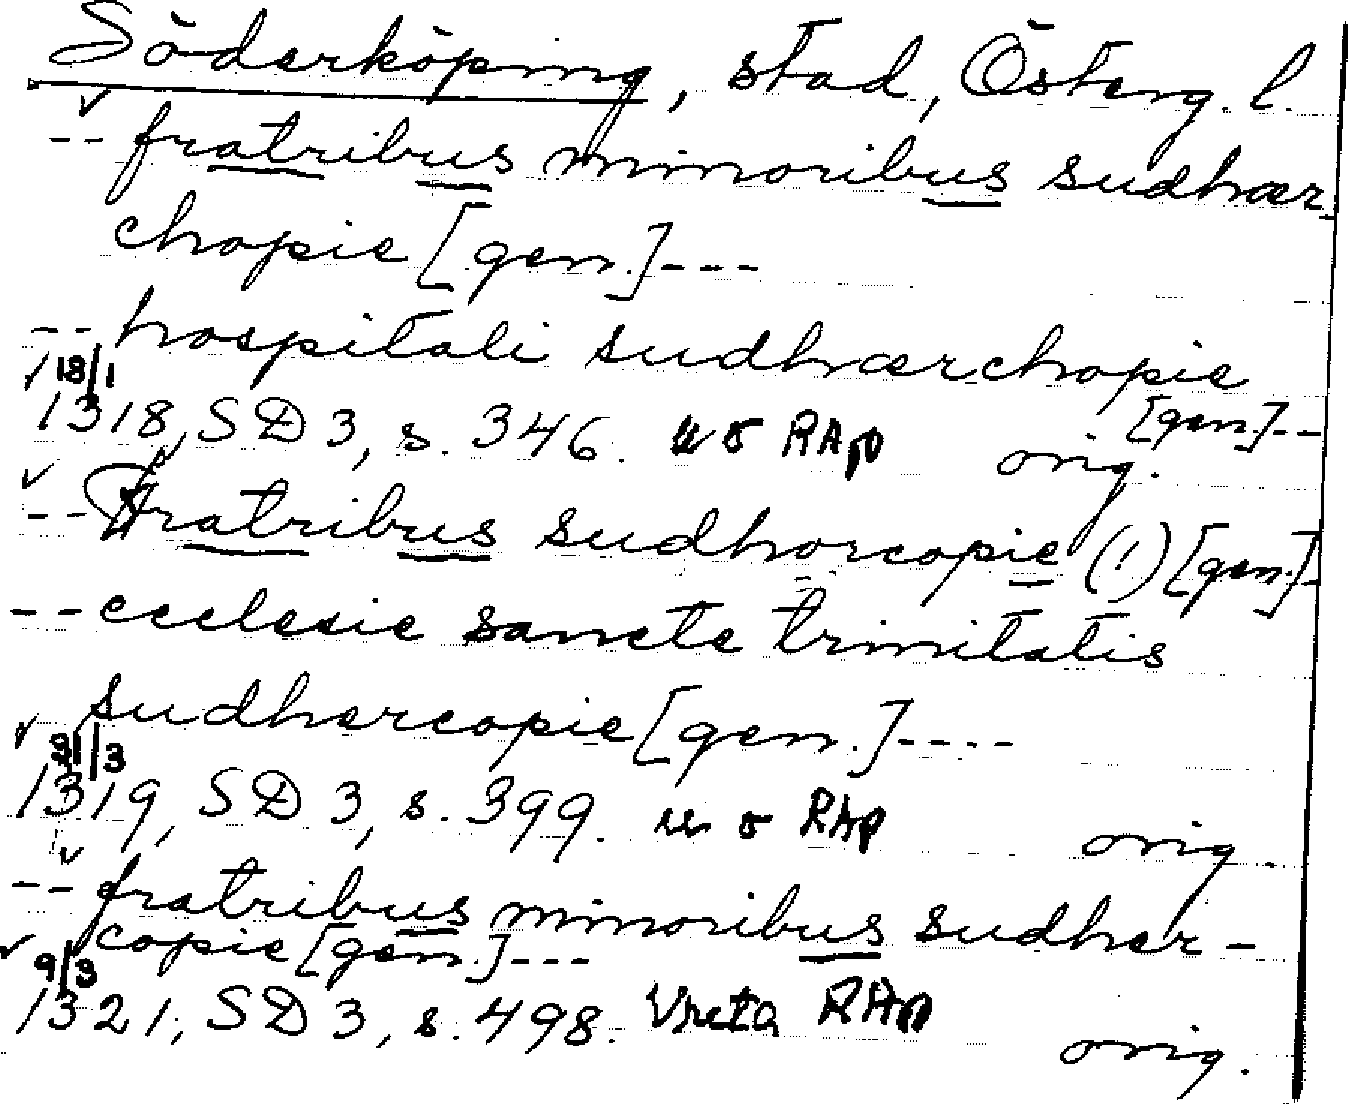 Söderköping, stad, Österg. l.
-- fratribus minoribus sudhær
chopie [gen.] ---
-- hospitali sudhærchopie
[gen.] --
18/1 1318, SD 3, s. 346. u o RAp orig.
-- Fratribus sudhorcopie (!) [gen.]
-- ecclesie sancte trinitatis
sudhercopie [gen.] ----
31/3 1319, SD 3, s. 399. u o RAp orig.
-- fratribus minoribus sudher-
copie [gen.] ---
9/3 1321, SD 3, s. 498. Vreta RAp orig.